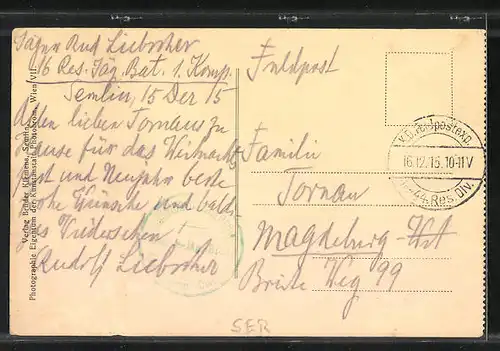 Jäger Rud Liebscher
16 Res. Jäg. Bat. 1. Komp.
Semlin, 15 Dez 15
Allen lieben Tornaus zu
Hause für das Weihnachts
fest und Neujahr beste
frohe Wünsche und baldi-
ges Wiedersehen!
Rudolf Liebscher
Feldpost
Familie
Tornau
Magdeburg-
Breite Weg 99
16.12.15.10-11V
44.Res.Div.
SER
Verlag Brüder Semlin
Photographie Eigentum der Kunstanstalt Photobrom, Wien VII.